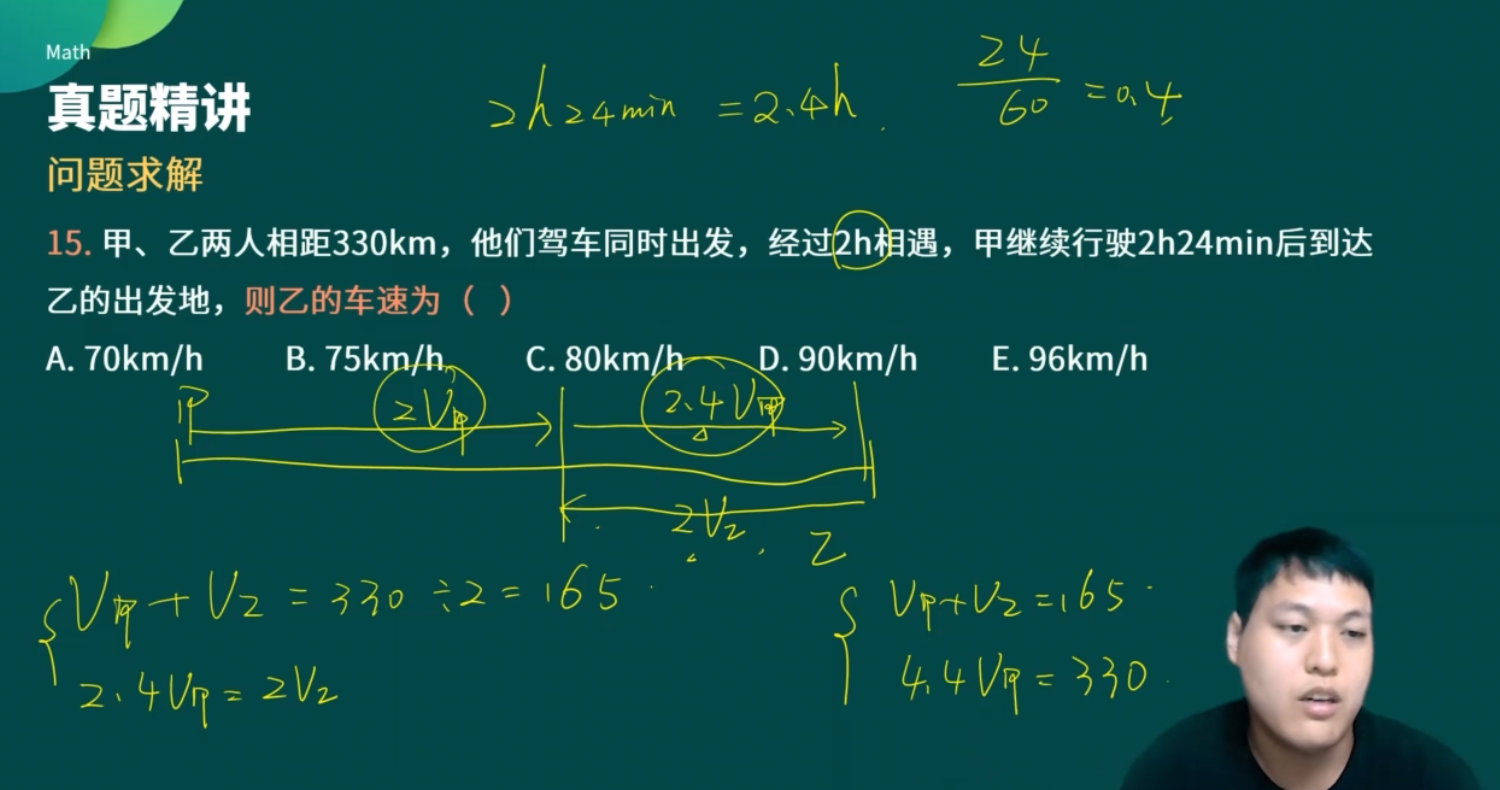 Math
真题精讲
2h24min = 2.4h
24/60 = 0.4
问题求解
15. 甲、乙两人相距330km，他们驾车同时出发，经过2h相遇，甲继续行驶2h24min后到达
乙的出发地，则乙的车速为（ ）
A. 70km/h B. 75km/h C. 80km/h D. 90km/h E. 96km/h
甲 2V甲 2.4V甲
2V乙 乙
V甲+V乙=330÷2=165
2.4V甲=2V乙
V甲+V乙=165
4.4V甲=330